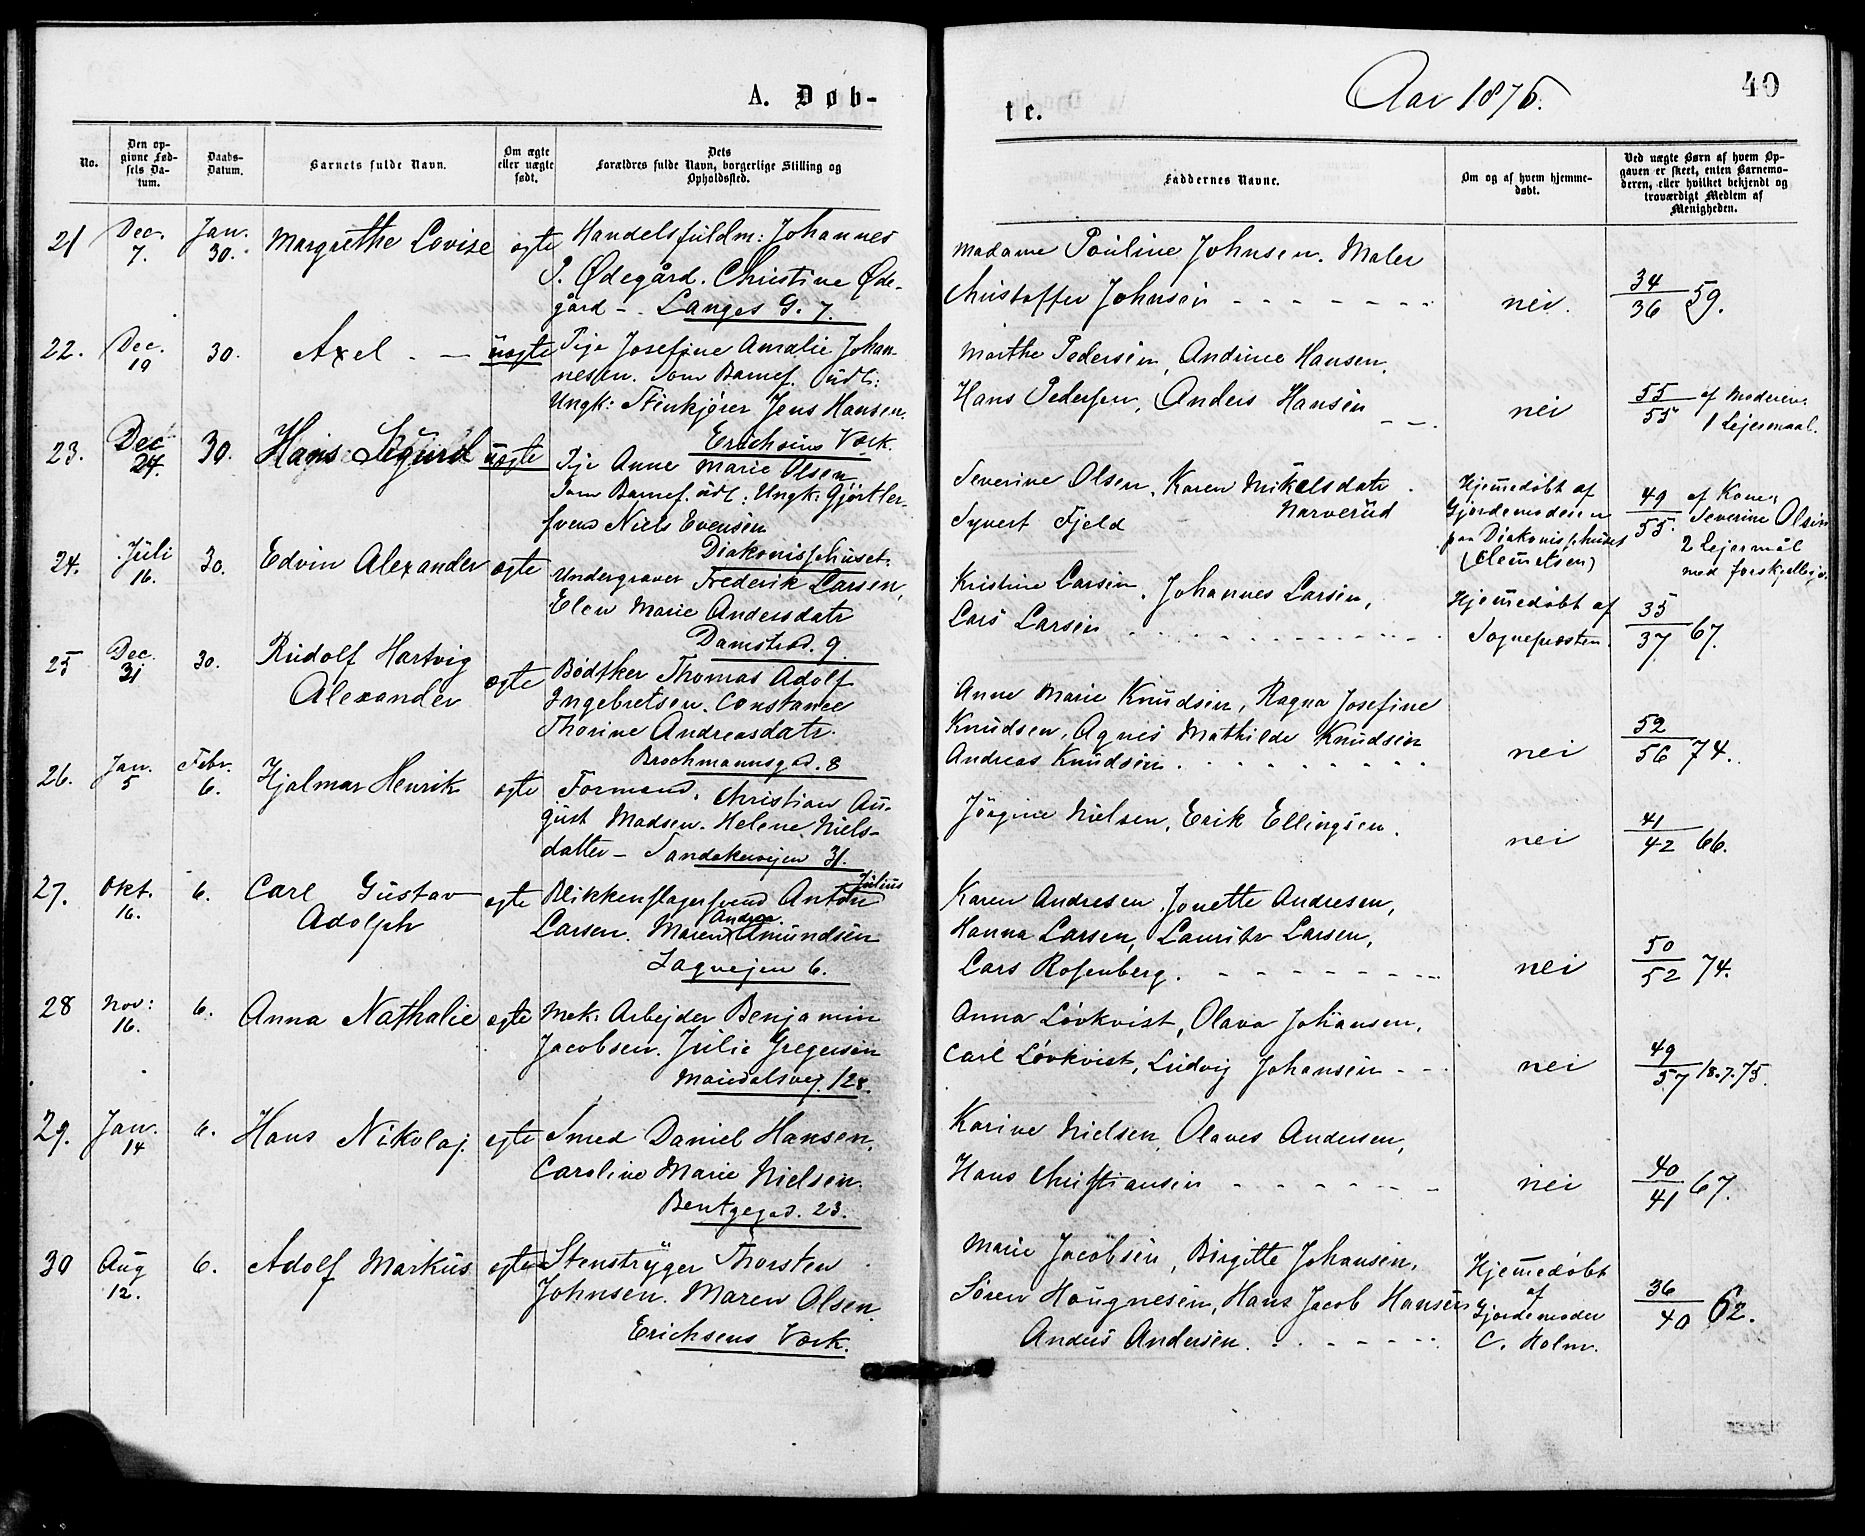 A. Døb-
No.
Den op-
givne Fød-
sels Da-
tum.
Daabs-
Datum.
Barnets fulde Navn.
Om ægte
eller uægte
født.
Dets
Forældres fulde Navn, borgerlige Stilling og
Opholdssted.
21 Dec. 7. Jan. 30. Margrethe Lovise ægte Handelsfuldm: Johannes
P. Ødegård. Christine Øde-
gård - Langes G. 7.
22. Dec. 19 30. Axel uægte Pige Josefine Amalie Johan-
nesen. Som Barnef. udl:
Ungk: Stenkjører Jens Hansen.
Erichsens Værk.
23. Dec 24. 30. Hans Sigurd uægte Pige Anne Marie Olsen
Som Barnef. udl: Ungk: Gjørtler-
svend Niels Evensen
Diakonissehuset.
24. Juli 16. 30. Edvin Alexander ægte Undergraver Frederik Larsen,
Elen Marie Andersdatr
Damstræd. 9
25 Dec. 31 30. Rudolf Hartvig
Alexander ægte Bødtker Thomas Adolf
Ingebretsen. Constance
Thorine Andreasdatr.
Brochmannsgad. 8
26. Jan. 5 Febr. 6. Hjalmar Henrik ægte Formand. Christian Au-
gust Madsen. Helene Niels-
datter - Sandakerveien 31.
27. Okt. 16. 6. Carl Gustav
Adolph ægte Blikkenslagersvend Anton Julius
Larsen. Maren Andrea Amundsen
Sagvejen 6.
28 Nov: 16. 6. Anna Nathalie ægte Mek: Arbejder Benjamin
Jacobsen. Julie Gregersen
Maridalsvej. 128.
29. Jan. 14 6. Hans Nikolaj. ægte Smed Daniel Hansen,
Caroline Marie Nielsen.
Bentzegad. 23.
30 Aug 12. 6. Adolf Markus ægte Stenstryger Thorsten
Johnsen. Maren Olsen.
Erichsens Værk.
te.
Aar 1876.
40
Faddernes Navne.
Om og af hvem hjemme-
døbt.
Ved uægte Børn af hvem Op-
gaven er skeet, enten Barnemo-
deren, eller hvilket bekjendt og
troværdigt Medlem af
Menigheden.
Madame Pauline Johnsen. Maler
Christoffer Johnsen nei. 34/36 59.
Marthe Pedersen, Andrine Hansen,
Hans Pedersen, Anders Hansen nei 55/55 af Moderen.
1 Lejermaal.
Severine Olsen, Karen Mikelsdatr
Narverud
Syvert Fjeld
Hjemmedøbt af
Gjordemoderen
paa Diakonissehuset
(Clemetsen)
49/55. af Konen
Severine Olsen
2 Lejermål
med forskjellige.
Kristine Larsen, Johannes Larsen,
Lars Larsen
Hjemmedøbt af
Sognepresten.
35/37 67.
Anne Marie Knudsen, Ragna Josefine
Knudsen, Agnes Mathilde Knudsen
Andreas Knudsen. nei 52/56 74.
Jørgine Nielsen, Erik Ellingsen. nei 41/42 66.
Karen Andresen, Jonette Andresen,
Hanna Larsen, Lauritz Larsen,
Lars Rosenberg. nei 50/52 74.
Anna Løvkvist, Olava Johansen,
Carl Løvkvist, Ludvig Johansen nei 49/57 18.7.75.
Karine Nielsen, Olaves Andersen,
Hans Christiansen nei 40/41 67.
Marie Jacobsen, Birgitte Johansen,
Søren Haugnesen, Hans Jacob Hansen
Anders Andersen.
Hjemmedøbt
af
Gjordemoder
C. Holm.
36/40 62.